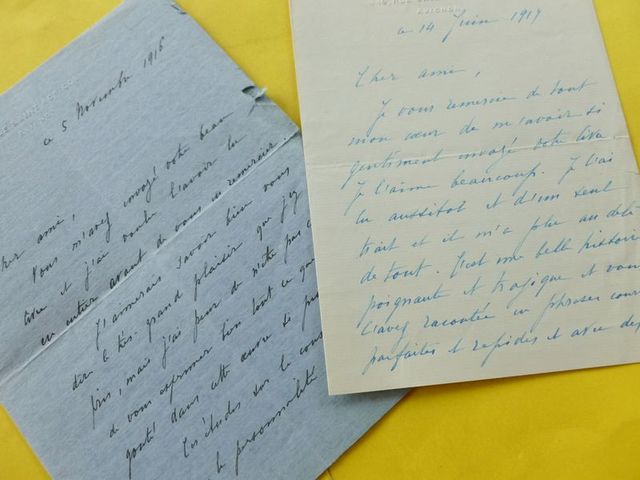 ce 5 Novembre 1916
Cher ami,
Vous m'avez envoyé votre beau
livre et j'ai voulu l'avoir lu
en entier avant de vous en remercier.
J'aimerais savoir bien vous
dire le très grand plaisir que j'y
pris, mais j'ai peur de n'être pas c
de vous exprimer bien tout ce que
gouté dans cette œuvre si pro
Ces études sur le cour
la personnalité
AVIGNON
ce 14 Juin 1917
Cher ami,
Je vous remercie de tout
mon cœur de m'avoir si
gentiment envoyé votre livre.
Je l'aime beaucoup. Je l'ai
lu aussitot et d'un seul
trait et il m'a plu au delà
de tout. C'est une belle histoire
poignante et tragique et vous
l'avez racontée en phrases cour
parfaites et rapides et avec des